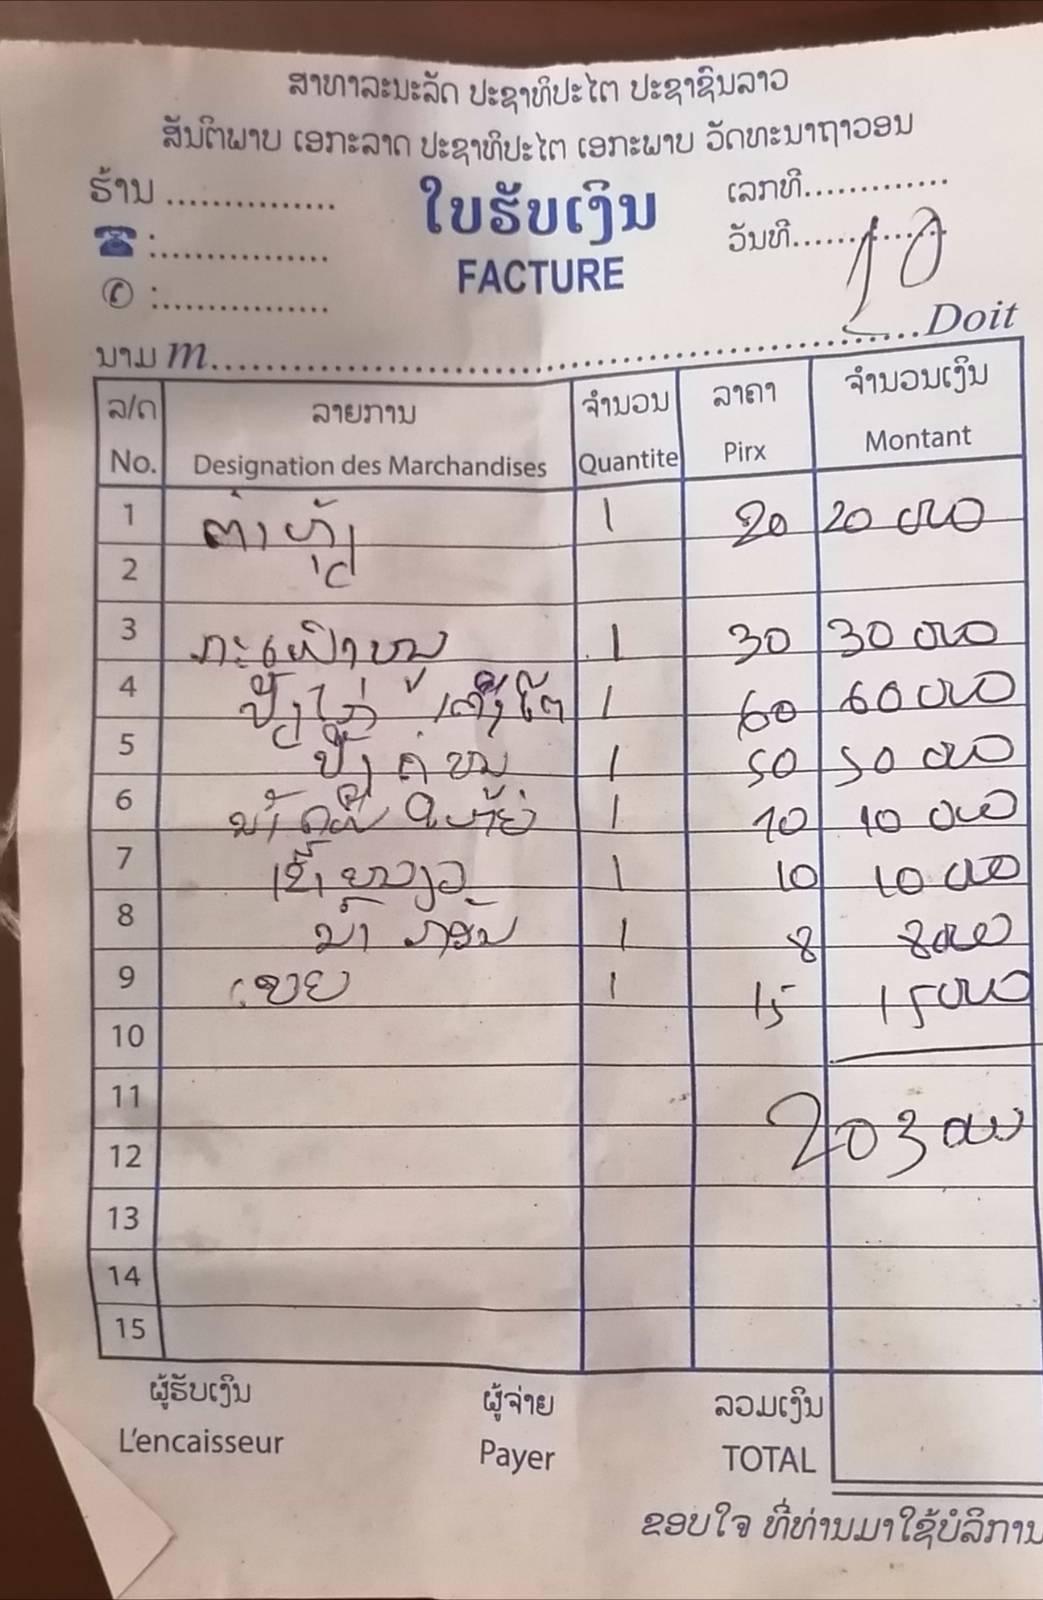 ສາທາລະນະລັດ ປະຊາທິປະໄຕ ປະຊາຊົນລາວ
ສັນຕິພາບ ເອກະລາດ ປະຊາທິປະໄຕ ເອກະພາບ ວັດທະນາຖາວອນ
ຮ້ານ ............... ໃບຮັບເງິນ ເລກທີ..............
☎ :................ FACTURE ວັນທີ............... 10
✆ :................
ນາມ m.......................................................Doit
ລ/ດ ລາຍການ ຈຳນວນ ລາຄາ ຈຳນວນເງິນ
No. Designation des Marchandises Quantite Pirx Montant
1 ຕຳຫຸ້ງ 1 20 20 000
2
3 1 30 30 000
4 ປີ້ງໄກ່ 1 60 60 000
5 ປີ້ງ 1 50 50 000
6 ນ້ຳ 1 10 10 000
7 ເຂົ້າໜຽວ 1 10 10 000
8 ນ້ຳ 1 8 8000
9 1 15 15000
10
11 203 000
12
13
14
15
ຜູ້ຮັບເງິນ ຜູ້ຈ່າຍ ລວມເງິນ
L'encaisseur Payer TOTAL
ຂອບໃຈ ທີ່ທ່ານມາໃຊ້ບໍລິການ